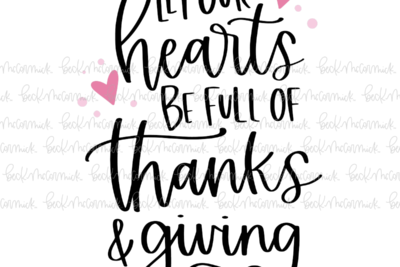 LET OUR
hearts
BE FULL OF
thanks
& giving